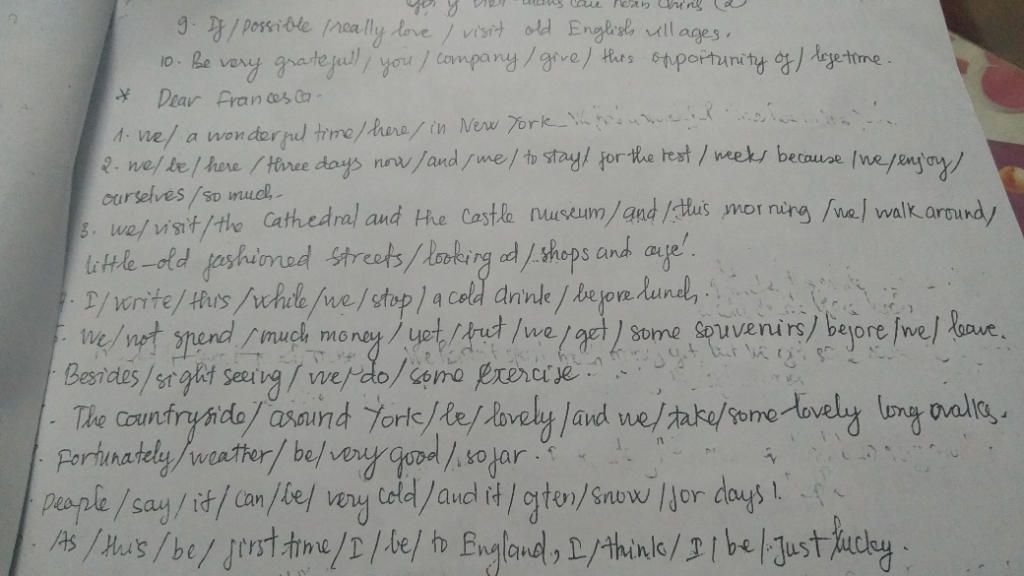 9. If / possible / really love / visit old English villages.
10. Be very gratefull / you / company / give / this opportunity of / lifetime.
* Dear Francesca.
1. we / a wonderful time / here / in New York
2. we / be / here / three days now / and / we / to stay / for the rest / week / because / we / enjoy /
ourselves / so much.
3. we / visit / the Cathedral and the Castle museum / and / this morning / we / walk around /
little-old fashioned streets / looking at / shops and
I / write / this / while / we / stop / a cold drink / before lunch.
We / not spend / much money / yet / but / we / get / some souvenirs / before / we / leave.
Besides / sight seeing / we / do / some exercise
The countryside / around York / be / lovely / and we / take / some lovely long walks.
Fortunately / weather / be / very good / so far.
People / say / it / can / be / very cold / and it / often / snow / for days!
As / this / be / first time / I / be / to England, I / think / I / be / Just lucky.